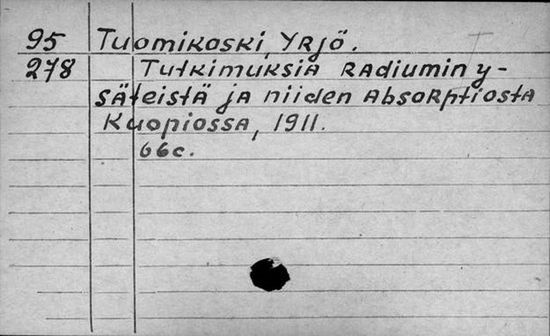 95 Tuomikoski, Yrjö.
278 Tutkimuksia Radiumin y-
säteistä ja niiden Absorptiosta
Kuopiossa, 1911.
66c.